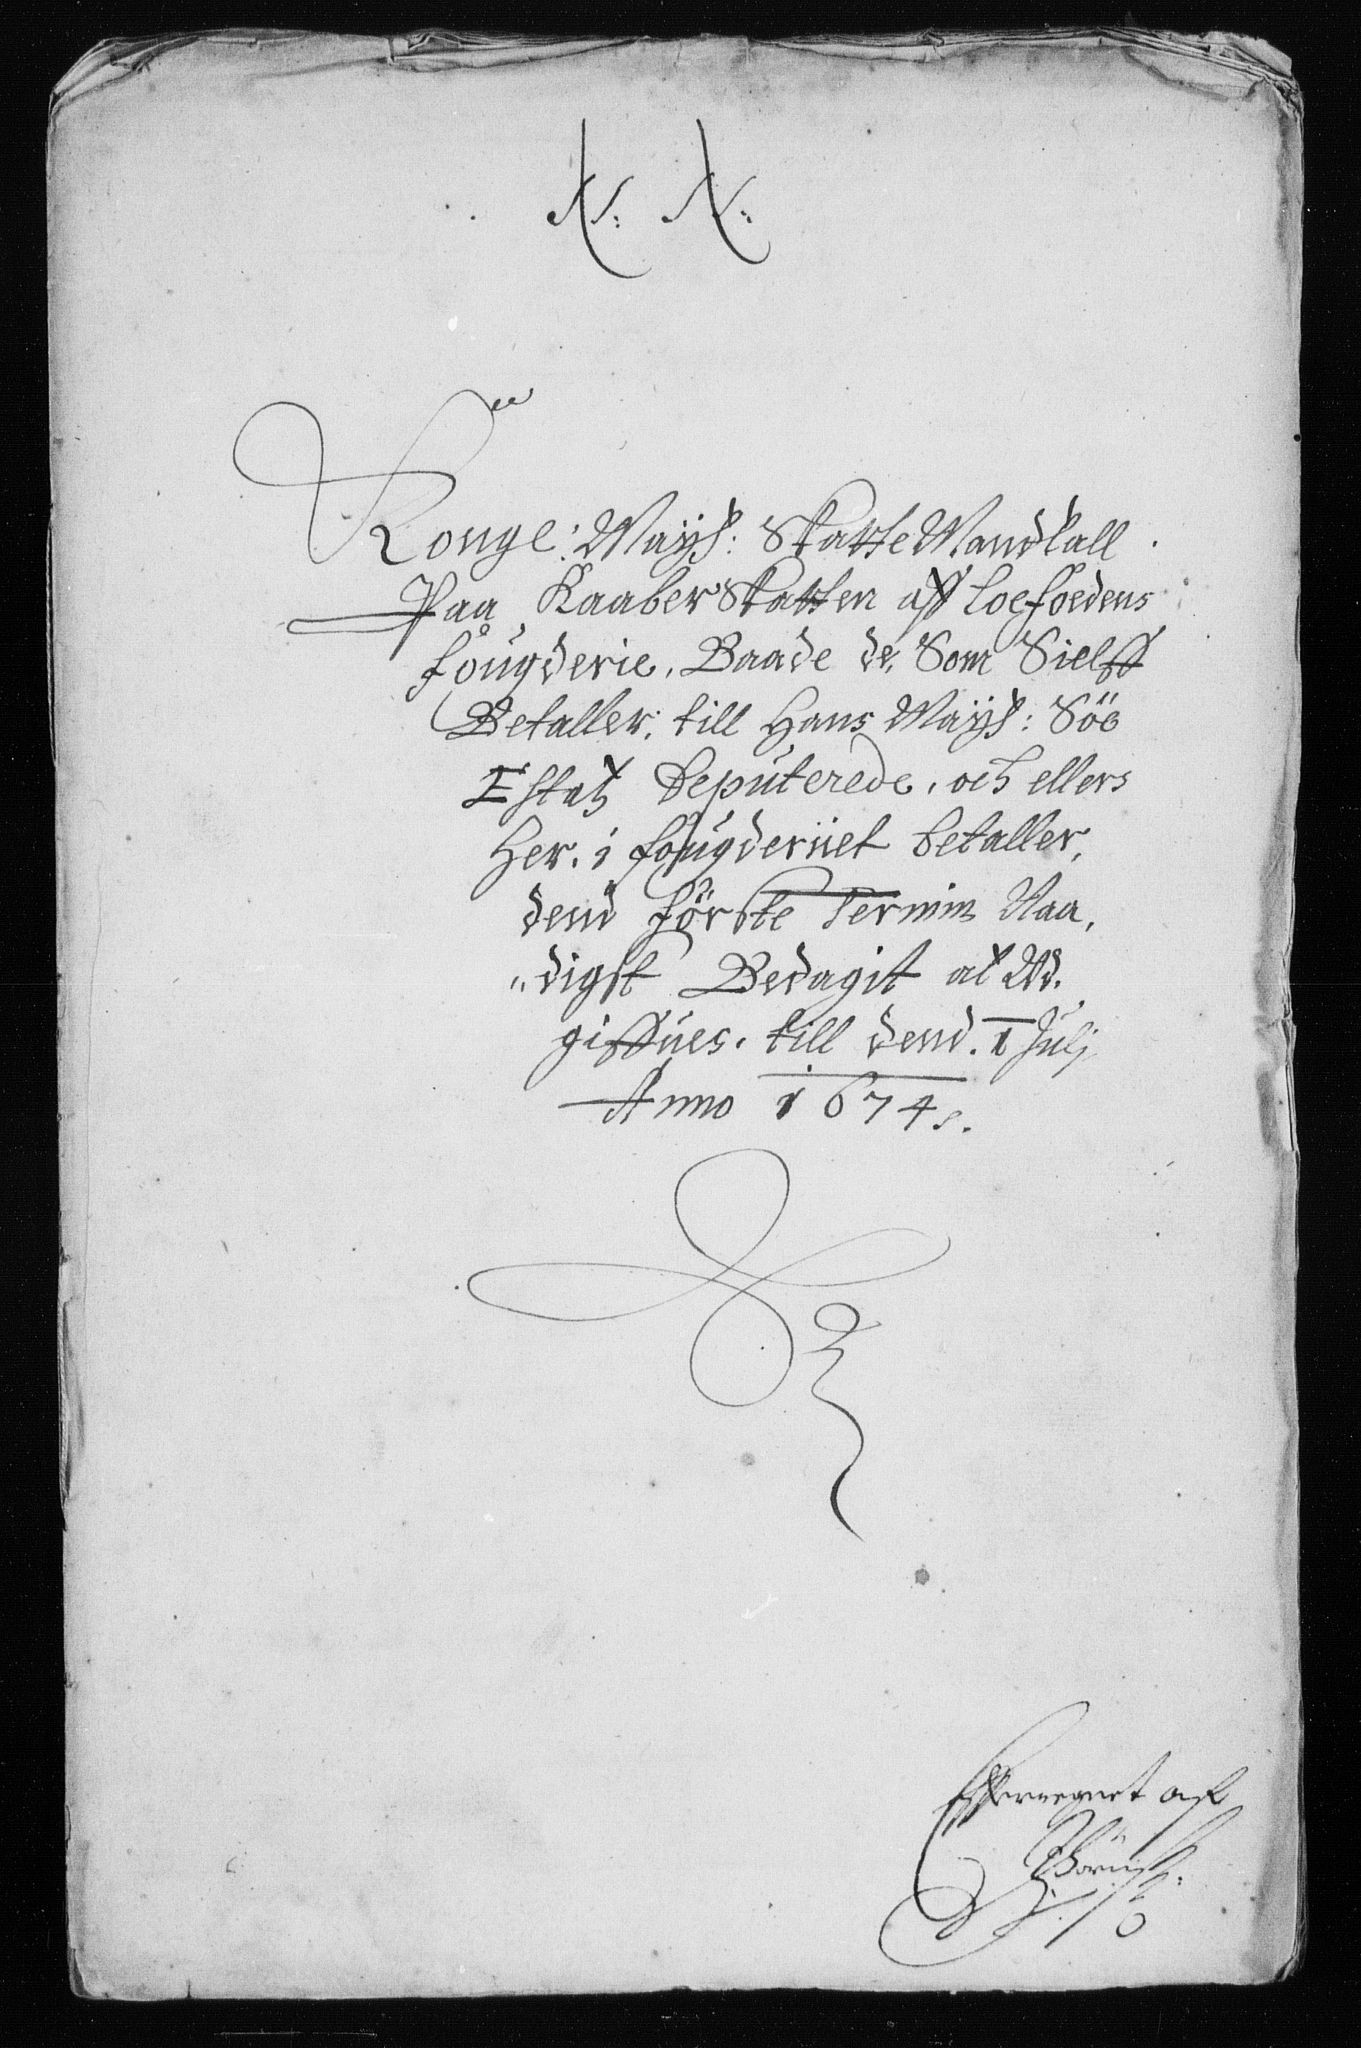 N: N:
Konge: Mayst: Skatte Mandtall
Paa Kaaber Skatten aff Loefoedens
fougderie, Baade de Som Sielff
Betaller: till Hans Mayst: Söe
Estatz Deputerede, och ellers
Her i fougderiiet betaller,
dend förste Termin Naa,
„digst Bedagit at Ud,
giffues. till dend. 1 Julj
Anno 1674.
Efterregnet af